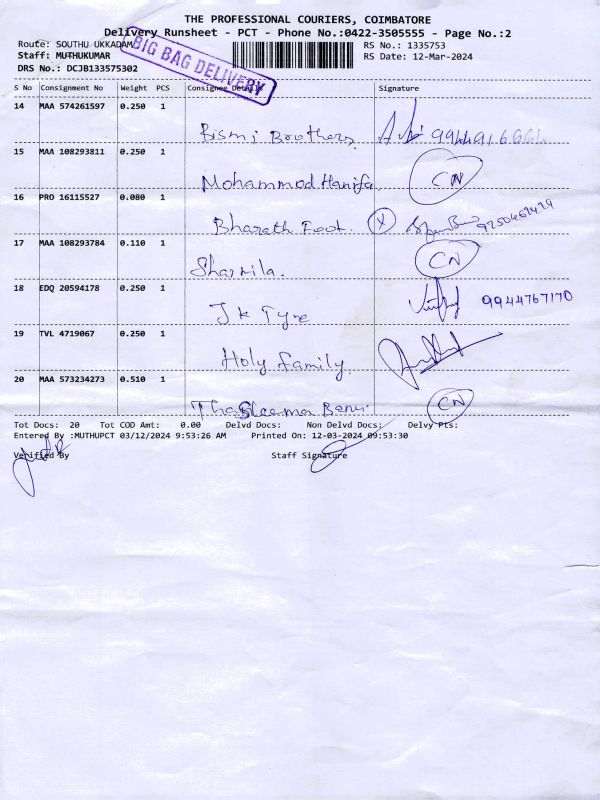 THE PROFESSIONAL COURIERS, COIMBATORE
Delivery Runsheet - PCT - Phone No.:0422-3505555 - Page No.:2
Route: SOUTHU UKKADAM
RS No.: 1335753
Staff: MUTHUKUMAR
RS Date: 12-Mar-2024
DRS No.: DCJB133575302
BIG BAG DELIVERY
S No Consignment No Weight PCS Consignee Details Signature
14 MAA 574261597 0.250 1
Bismi Brothers
15 MAA 108293811 0.250 1
Mohammod Hanifa CN
16 PRO 16115527 0.080 1
Bharath Foot. X
17 MAA 108293784 0.110 1
Sharmila. CN
18 EDQ 20594178 0.250 1
Jk Tyre 9944767170
19 TVL 4719067 0.250 1
Holy family.
20 MAA 573234273 0.510 1
CN
Tot Docs: 20 Tot COD Amt: 0.00 Delvd Docs: Non Delvd Docs: Delvy Pts:
Entered By :MUTHUPCT 03/12/2024 9:53:26 AM Printed On: 12-03-2024 09:53:30
Verified By Staff Signature